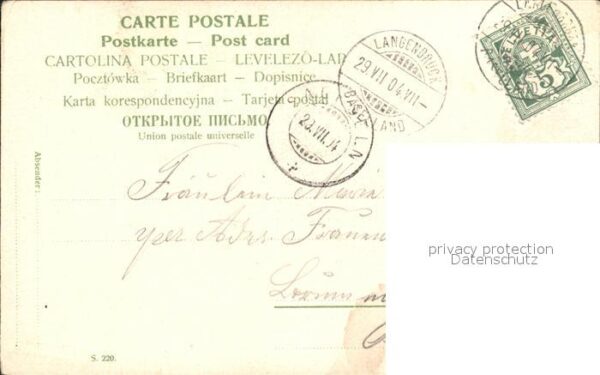 CARTE POSTALE
Postkarte — Post card
CARTOLINA POSTALE — LEVELEZÖ-LAP
Pocztówka — Briefkaart — Dopisnice
Karta korespondencyjna — Tarjeta postal
ОТКРЫТОЕ ПИСЬМО
Union postale universelle
LANGENBRUCK
29.VII.04.VII-
LAND
HELVETIA
5
29.VII.04
Absender:
Fräulein Maria
per Adr. Frauen
privacy protection
Datenschutz
S. 220.